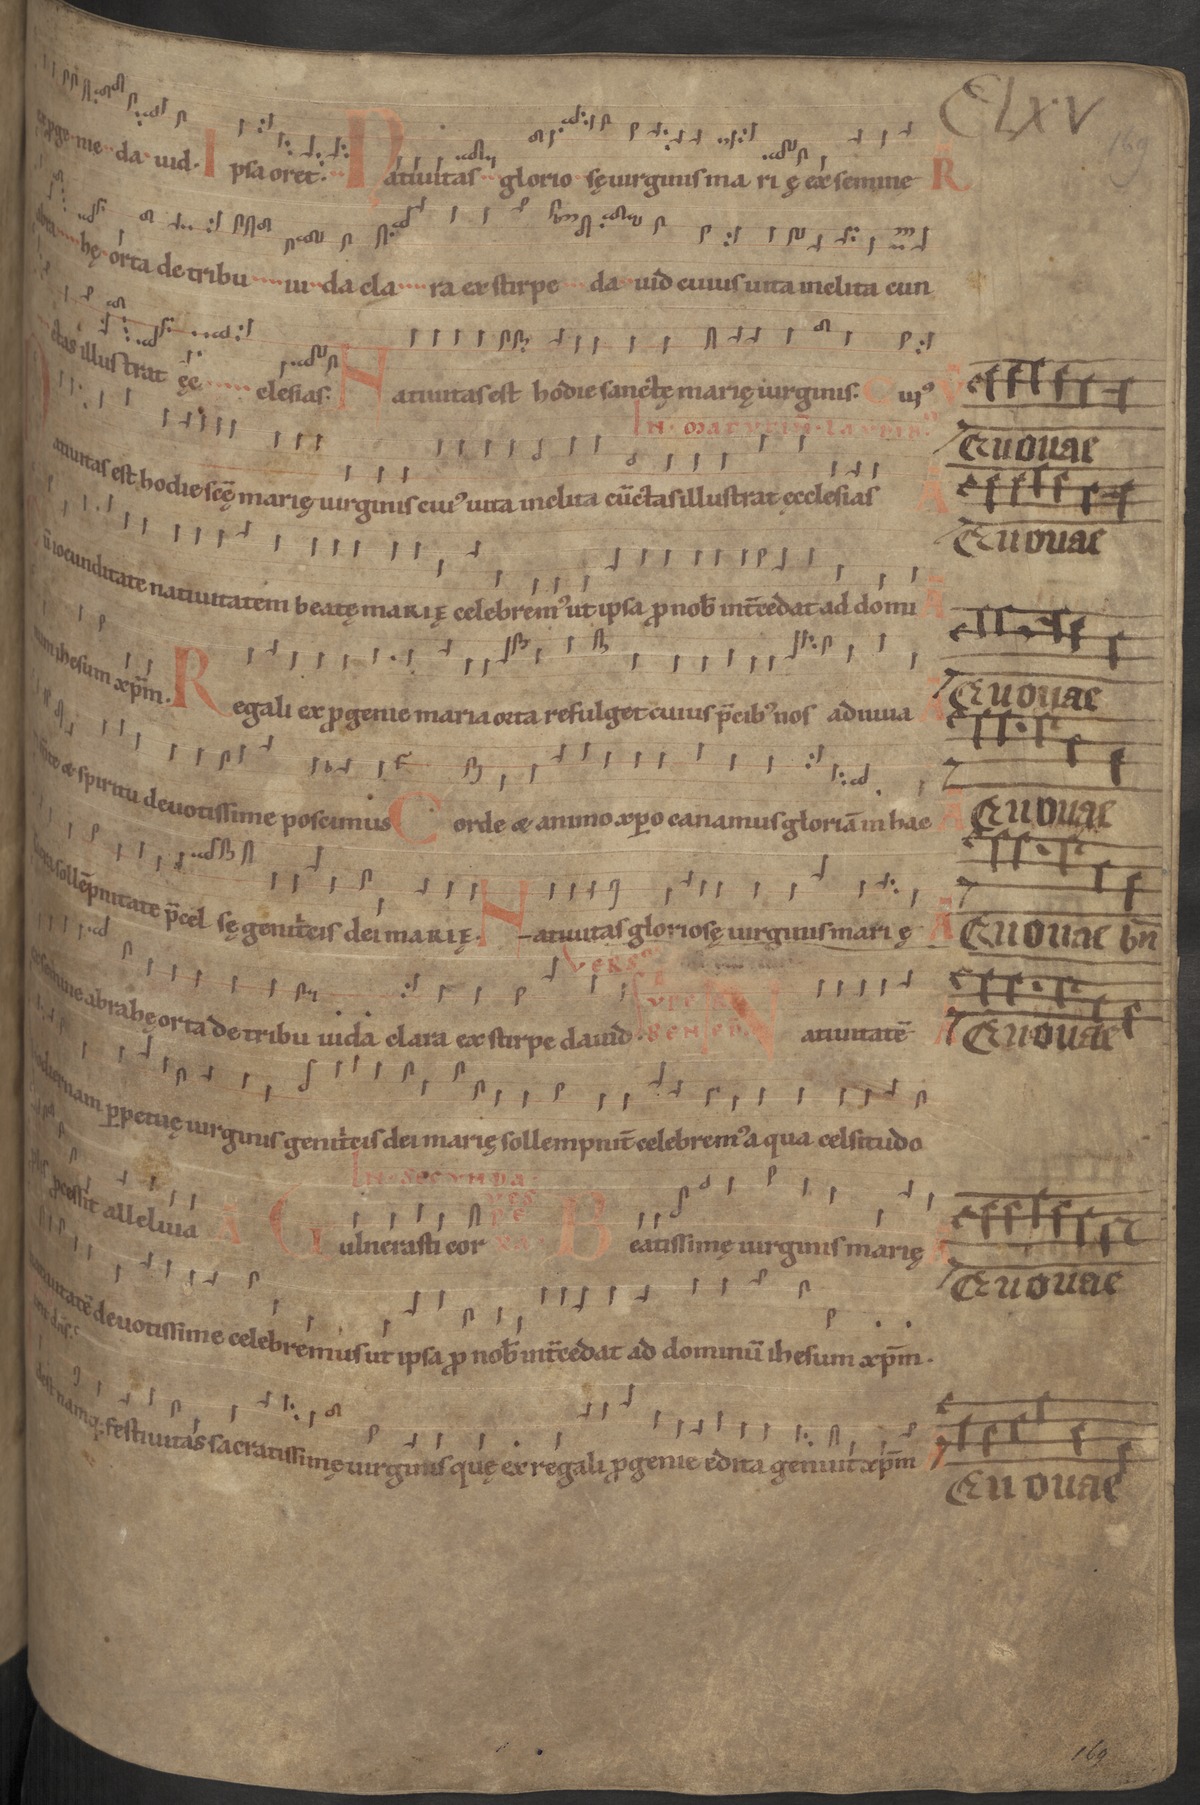 CLXV
169
ex p̱ge nie da uid. Ipsa oret. Natiuitas glorio sę uirginis ma ri ę ex semine R
abra hę orta de tribu iu da cla ra ex stirpe da uid cuius uita inclita cun
ctas illustrat ęc clesias. Natiuitas est hodie sanctę marię uirginis. Cui᷒ V
In matutin̄ laudib᷒
Euouae
atiuitas est hodie sc̄ę marię uirginis cui᷒ uita inclita cūctas illustrat ecclesias A
Euouae
ū iocunditate natiuitatem beatę MARIĘ celebrem᷒ ut ipsa ꝓ nob̄ int̄cedat ad domi A
num ihesum xp̄m. Regali ex ꝓgenie maria orta refulget cuius p̄cib᷒ nos adiuua A
Euouae
m̄te & spiritu deuotissime poscimus Corde & animo xp̄o canamus gloriā in hac A
Euouae
sacra sollēpnitate p̄cel sę genit̄cis dei MARIĘ. Natiuitas gloriosę uirginis mari ę A
Euouae bn̄
Vers᷒
ex semine abrahę orta de tribu iuda clara ex stirpe dauid. Natiuitatē A
Euouae
hodiernam ꝑpetuę uirginis genit̄cis dei marię sollempnit̄ celebrem᷒ a qua celsitudo
In secunda
uesperа
ꝓcessit alleluia A Vulnerasti cor Beatissimę uirginis marię A
Euouae
natiuitatē deuotissime celebremus ut ipsa ꝓ nob̄ int̄cedat ad dominū ihesum xp̄m.
dest namq; festiuitas sacratissimę uirginis quę ex regali ꝓgenie edita genuit xp̄m
Euouae
169